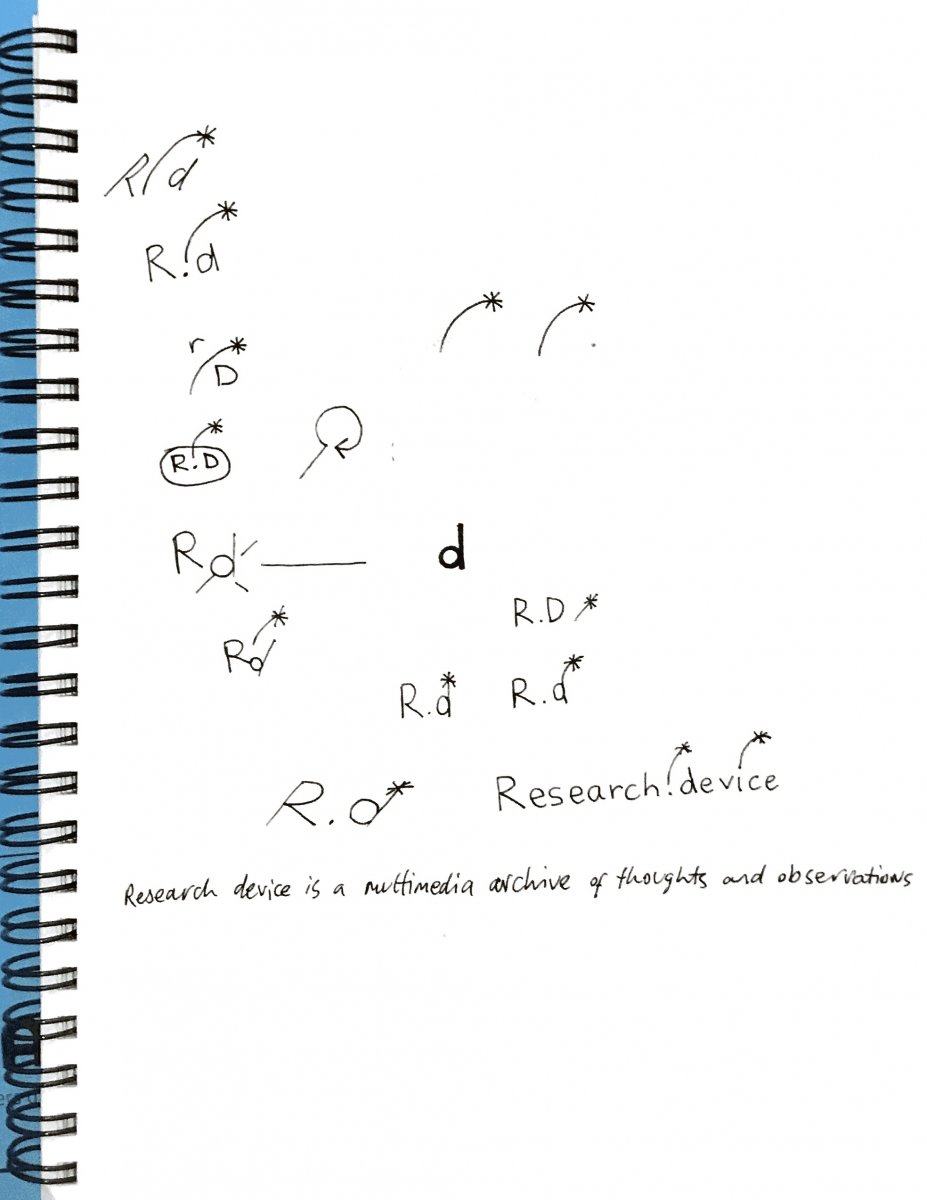 R/d*
R.d*
r
D*
R.D*
Rd
d
R.D*
Rd*
R.d*
R.d*
R.d*
Research.device**
Research device is a multimedia archive of thoughts and observations